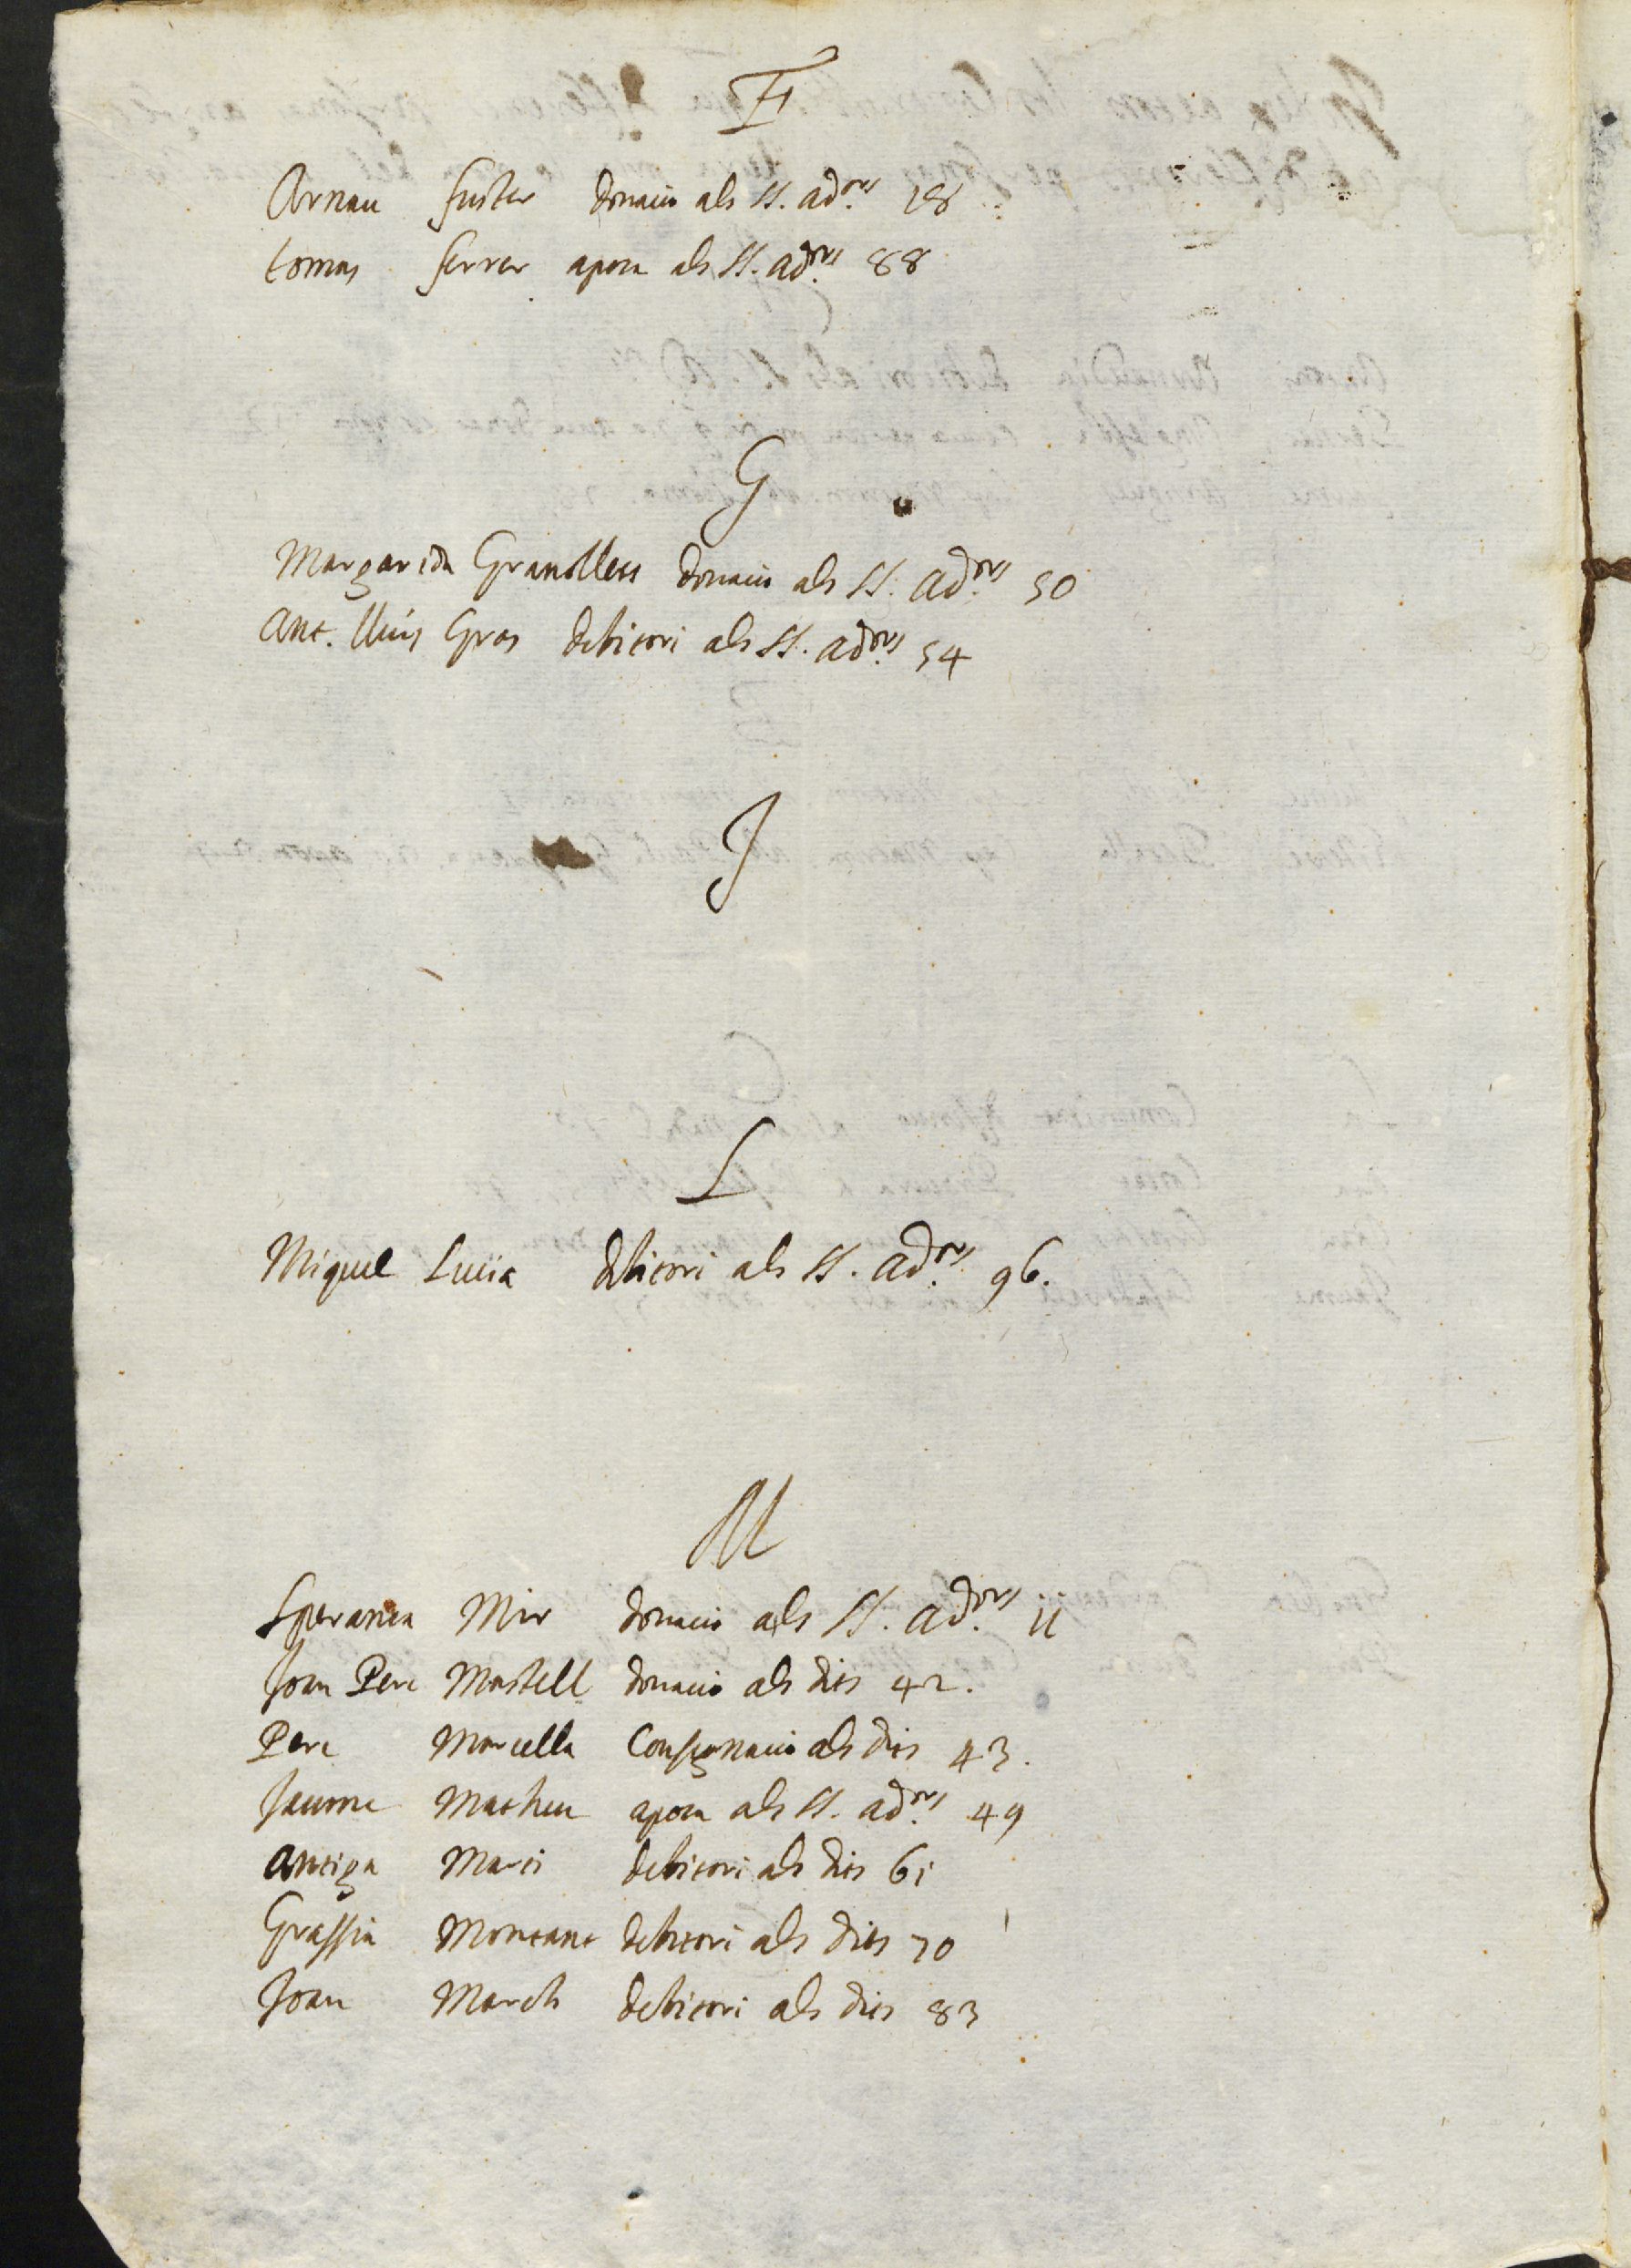 F
Arnau fuster donacio als SS. ador.s 18
tomas ferrer apoca als SS. ador.s 88
G
Margarida Granollers donacio als SS. ador.s 50
Ant. lluis Gros debitori als SS. ador.s 54
J
L
Miquel Lucia debitori als SS. ador.s 96.
M
Speransa Mir donacio als SS. ador.s 11
Joan Pere Mastell donacio als dits 42.
Pere Marcella Consignacio als dits 43.
Jaume Matheu apoca als SS. ador.s 49
Antiga Marti debitori als dits 61
Grassia Montant debitori als dits 70
Joan March debitori als dits 83